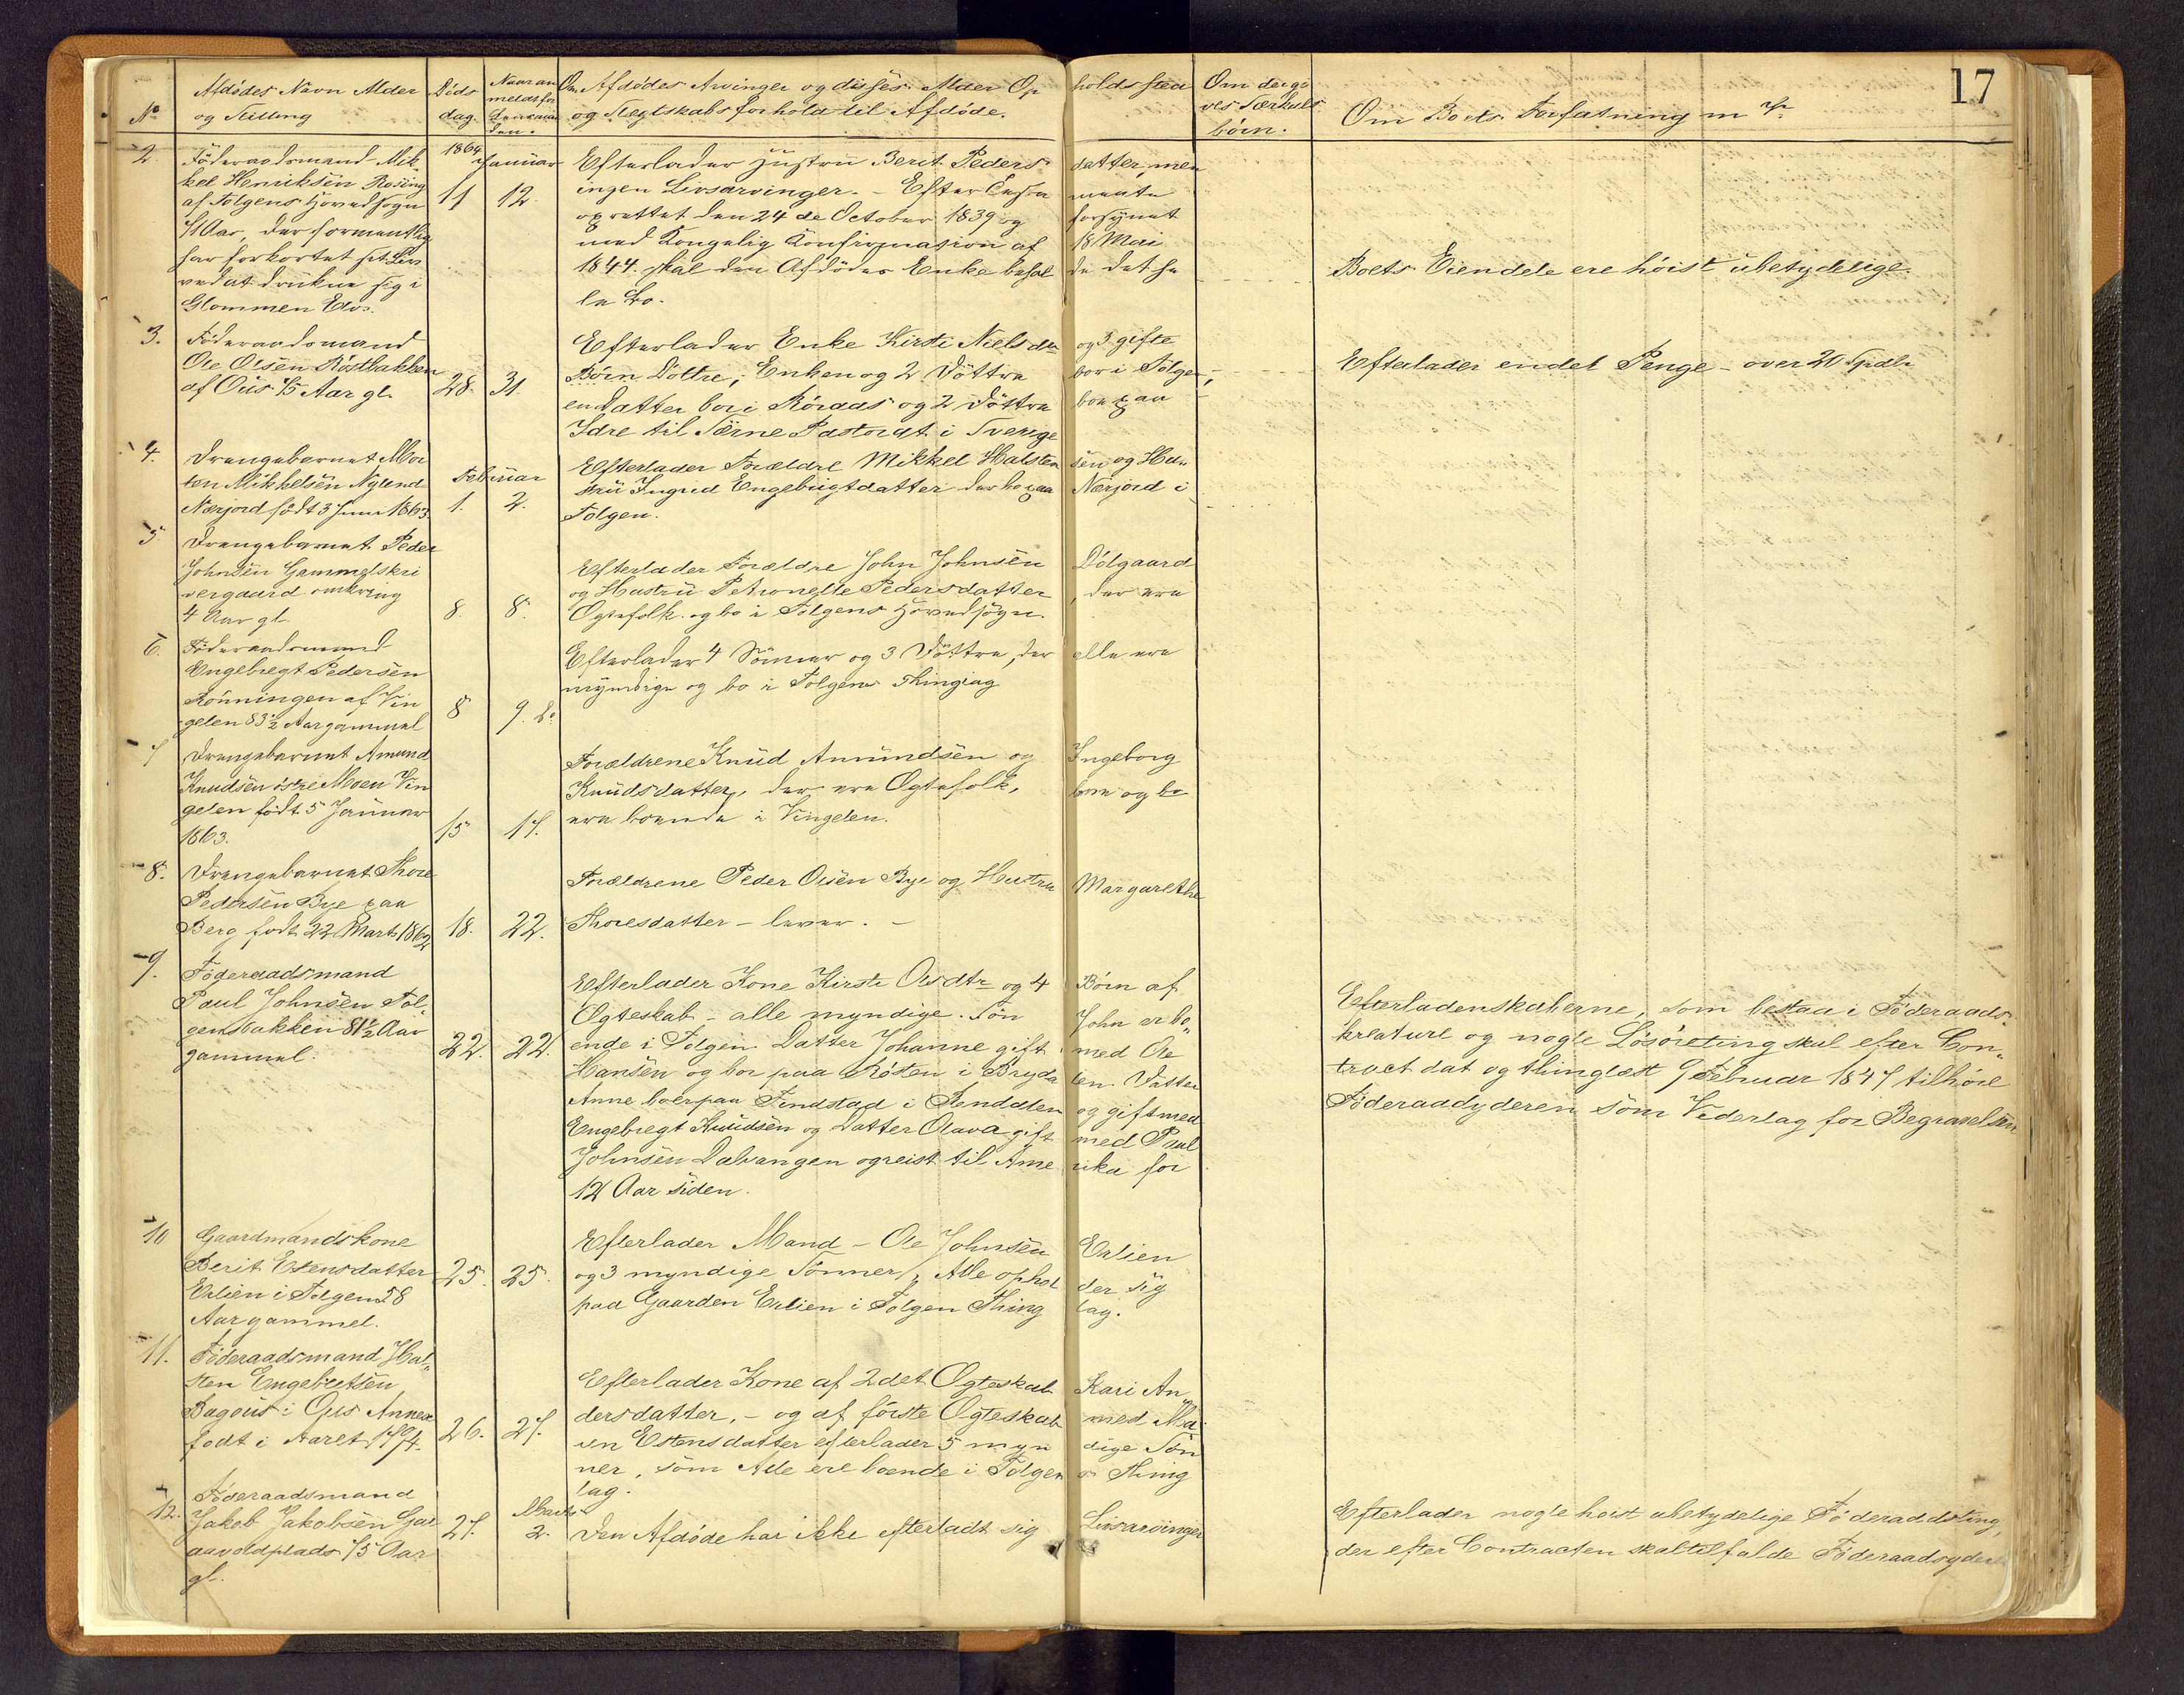 17
No
Afdødes Navn Alder
og Stilling
Døds
dag.
Naar an
meldt for
Om Afdødes Arvinger og disses Alder Op holdssted
og Slegtskabsforhold til Afdøde.
Om der gi
ves Særkuls
børn.
Om Boets Forfatning m v.
1864
Januar
2. Föderaadsmand Mik
kel Henriksen Rosing
af Tolgens Hovedsogn
71 Aar, der formentlig
har forkortet sit Liv
ved at drukne sig i
Glommen Elv.
11 12.
Efterlader Hustru Berit Peders datter, men
ingen Livsarvinger. - Efter Testa mente
oprettet den 24de October 1839 og forsynet
med Kongelig Konfirmation af 18 Mai
1844. skal den Afdødes Enke behol de det he
le Bo.
Boets Eiendele ere höist übetydelige.
3. Föderaadsmand
Ole Olsen Röstbakken
af Öus 75 Aar gl.
28. 31.
Efterlader Enke Kirsti Nielsdr og 5 gifte
Börn Döttre; Enken og 2 Döttre bor i Tolgen;
en datter bor i Röraas og 2 Döttre boe paa
Idre til Särne Pastorat i Sverige
Efterlader endel Penge - over 20 Spdlr
4. Drengebarnet Mor
ten Mikkelsen Nylend
Nærjord födt 3 Juni 1863.
Februar
1. 2.
Efterlader Forældre Mikkel Halsten sen og Hu-
stru Ingrid Engebrigtdatter der bo paa Nærjord i
Tolgen.
5 Drengebarnet Peder
Johnsen Gammelskri
vergaard omkring
4 Aar gl.
8. 8.
Efterlader Forældre John Johnsen Dölgaard
og Hustru Petronelle Pedersdatter, der ere
Ægtefolk. og bo i Tolgens Hovedsogn.
6. Föderaadsmand
Engebregt Pedersen
Rönningen af Vin
gelen 83½ Aar gammel
8 9. do
Efterlader 4 Sönner og 3 Döttre, der alle ere
myndige og bo i Tolgens Thinglag
7 Drengebarnet Amund
Knudsen östre Moen Vin
gelen födt 5 Januar
1863.
15 17.
Forældrene Knud Amundsen og Ingeborg
Knudsdatter, der ere Ægtefolk,
ere boende i Vingelen.
8. Drengebarnet Thore
Pedersen Bye paa
Berg födt 22 Marts 1862
18. 22.
Forældrene Peder Olsen Bye og Hustru Margarethe
Thoresdatter - lever. -
9. Föderaadsmand
Paul Johnsen Tol-
gensbakken 81½ Aar
gammel.
22. 22.
Efterlader Kone Kirsti Olsdtr og 4 Börn af
Ægteskab - alle myndige. Sön John er bo-
ende i Tolgen. Datter Johanne gift med Ole
Hansen og bor paa Rösten i Bryda len. Datter
Anne boer paa Findstad i Rendalen og gift med
Engebregt Knudsen og Datter Olava gift med Paul
Johnsen Dalvangen og reist til Ame rika for
12 Aar siden.
Efterladenskaberne, som bestaa i Föderaads-
kreature og nogle Lösöreting skul efter Con-
tract dat og thinglæst 9 Februar 1847 tilhöre
Föderaadyderen som Vederlag for Begravelsen
10 Gaardmandskone
Berit Estensdatter
Erlien i Tolgen 58
Aar gammel.
25. 25.
Efterlader Mand - Ole Johnsen Erlien
og 3 myndige Sönner, Alle ophol der sig
paa Gaarden Erlien i Tolgen Thing lag.
11. Föderaadsmand Hal-
sten Engebretsen
Bagöus i Öus Annex
födt i Aaret 1774.
26. 27.
Efterlader Kone af 2det Ægteskab Kari An
dersdatter, - og af förste Ægteskab med Ma-
ren Estensdatter efterlader 5 myn dige Sön
ner, som Alle ere boende i Tolgen s Thing
lag.
12. Föderaadsmand
Jakob Jakobsen
75 Aar
gl.
27. Marts
2.
Den Afdøde har ikke efterladt sig Livsarvinger
Efterlader nogle höist ubetydelige Föderaadsting,
der efter Contracten skal tilfalde Föderaadsyderen